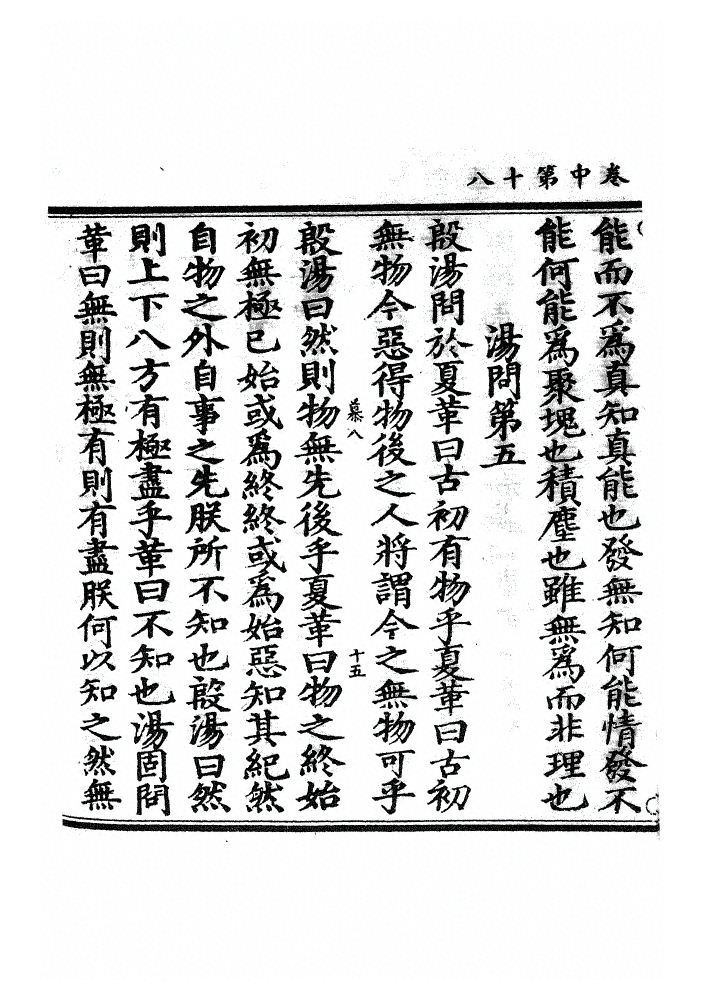 卷中第十八
能而不爲真知真能也發無知何能情發不
能何能爲聚塊也積塵也雖無爲而非理也
湯問第五
殷湯問於夏革曰古初有物乎夏革曰古初
無物今惡得物後之人將謂今之無物可乎
慕八
十五
殷湯曰然則物無先後乎夏革曰物之終始
初無極已始或爲終終或爲始惡知其紀然
自物之外自事之先朕所不知也殷湯曰然
則上下八方有極盡乎革曰不知也湯固問
革曰無則無極有則有盡朕何以知之然無